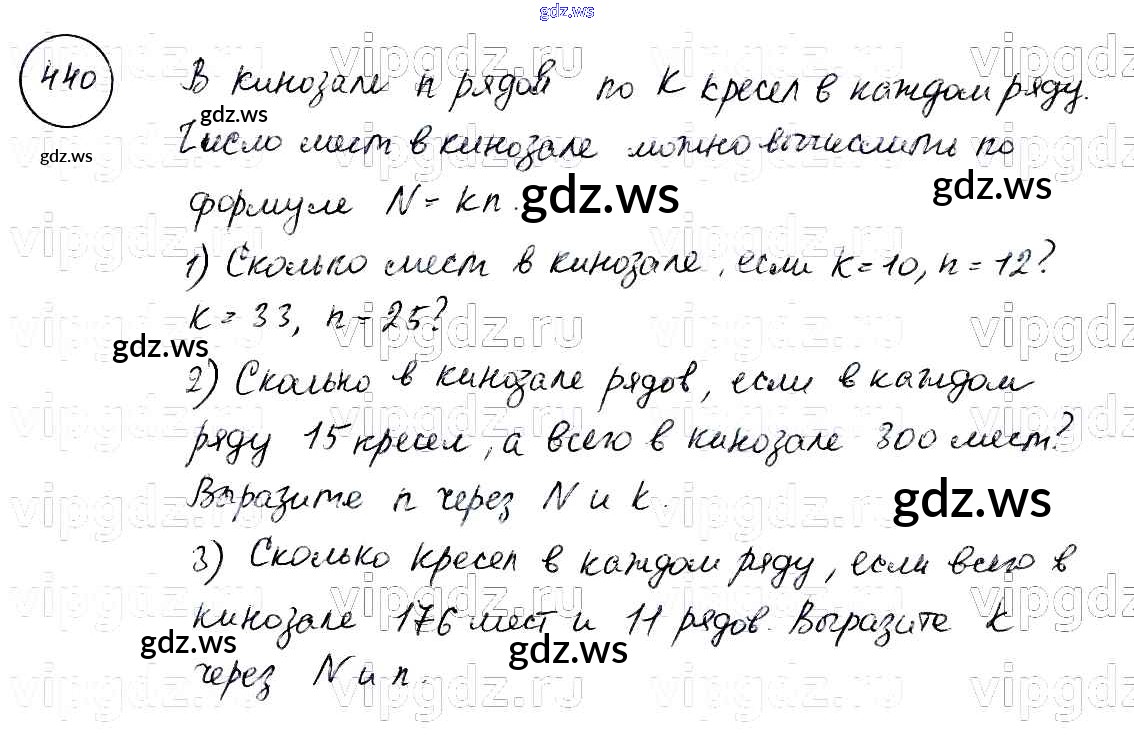 gdz.ws
440
В кинозале n рядов по k кресел в каждом ряду.
gdz.ws
Число мест в кинозале можно вычислить по
gdz.ws
формуле N = kn.
gdz.ws
gdz.ws
1) Сколько мест в кинозале, если k = 10, n = 12?
k = 33, n = 25?
gdz.ws
2) Сколько в кинозале рядов, если в каждом
ряду 15 кресел, а всего в кинозале 300 мест?
Выразите n через N и k.
gdz.ws
3) Сколько кресел в каждом ряду, если всего в
кинозале 176 мест и 11 рядов. Выразите k
gdz.ws
gdz.ws
через N и n.
vipgdz.ru